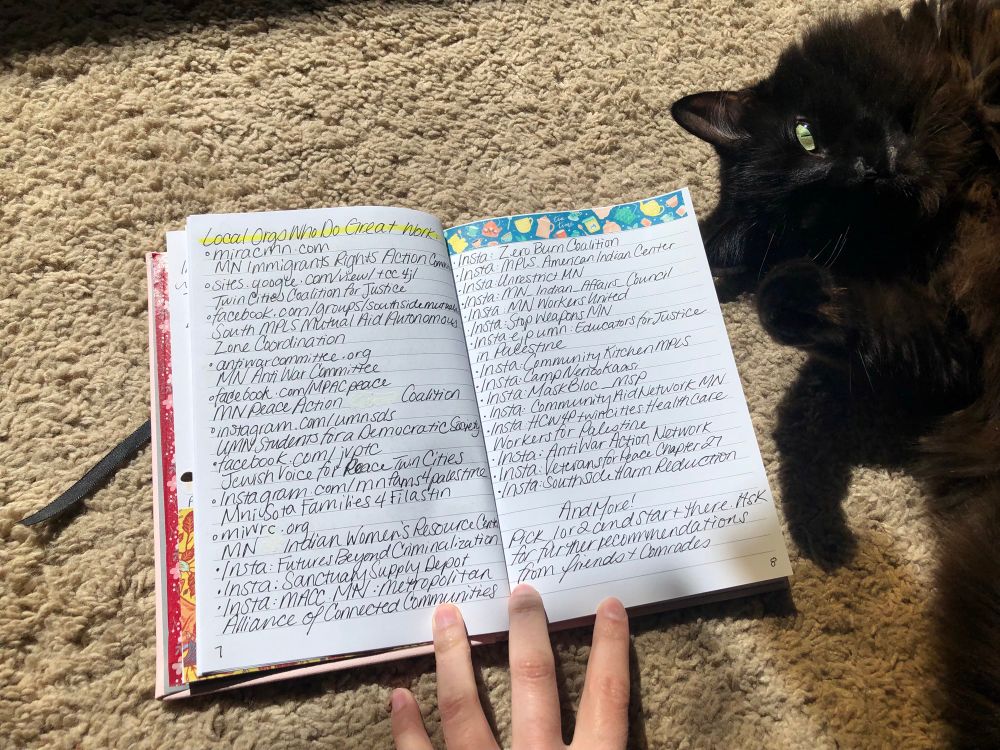 Local Orgs Who Do Great Work
miracmn.com
MN Immigrants Rights Action
sites.google.com/view/tcc4j/
Twin Cities Coalition for Justice
facebook.com/groups/southside
South MPLS Mutual Aid Autonomous
Zone Coordination
antiwarcommittee.org
MN Anti War Committee
facebook.com/MPACpeace
MN Peace Action Coalition
instagram.com/umnsds
UMN Students for a Democratic Society
facebook.com/jvptc
Jewish Voice for Peace Twin Cities
Instagram.com/mnfams4palestine
Mnisota Families 4 Filastin
miwrc.org
MN Indian Women's Resource
Insta: Futures Beyond Criminalization
Insta: Sanctuary Supply Depot
Insta: MACC MN - metropolitan
Alliance of Connected Communities
7
Insta: Zero Burn Coalition
Insta: MPLS American Indian Center
Insta Unrestrict MN
Insta: MN Indian Affairs Council
Insta: MN Workers United
Insta: Stop Weapons MN
Insta: ejp umn: Educators for Justice
in Palestine
Insta: Community Kitchen MPLS
Insta: Camp Nenookaasi
Insta: MaskBloc_MSP
Insta: Community Aid Network MN
Insta: HCW4P twincities Health Care
Workers for Palestine
Insta: Anti War Action Network
Insta: Veterans for Peace Chapter 27
Insta: Southside Harm Reduction
And More!
Pick 1 or 2 and start there. Ask
for further recommendations
from friends + Comrades
8